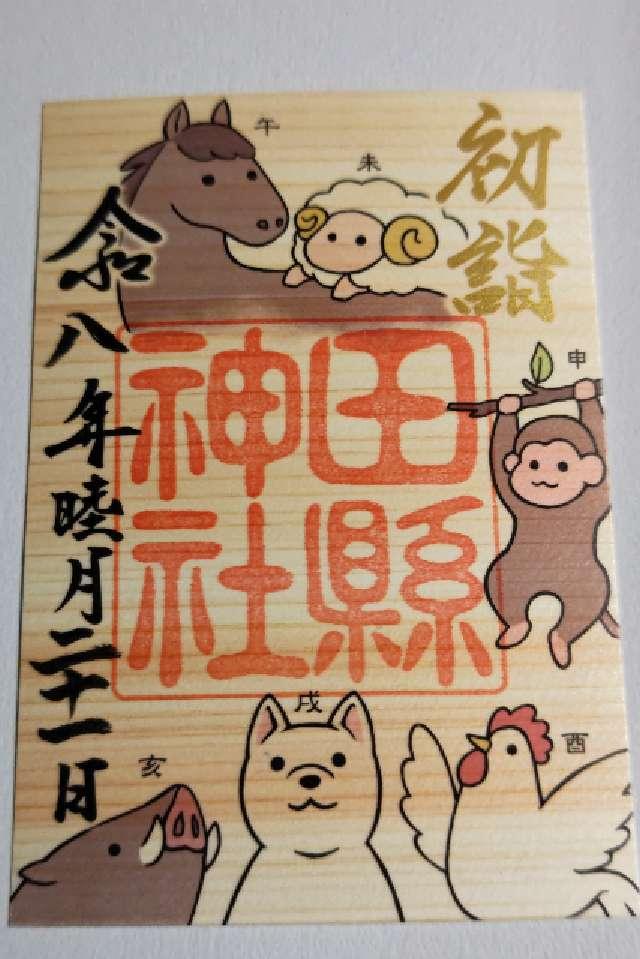 初詣
午
未
申
酉
戌
亥
田縣
神社
令和八年睦月二十一日